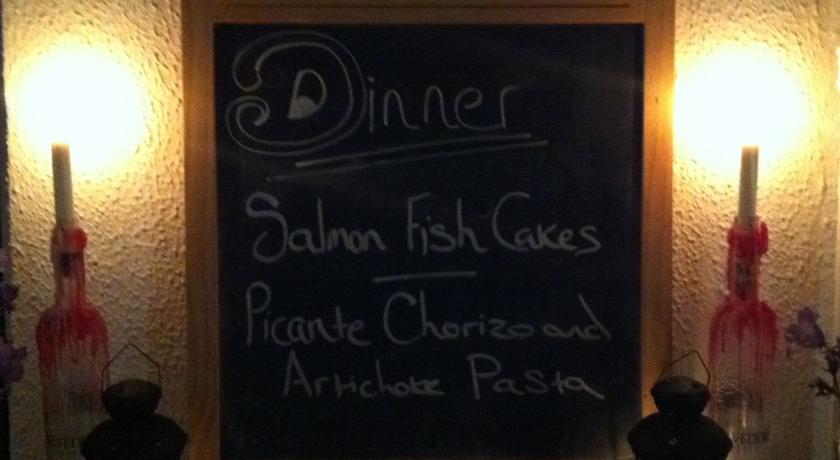 Dinner
Salmon Fish Cakes
Picante Chorizo and
Artichoke Pasta